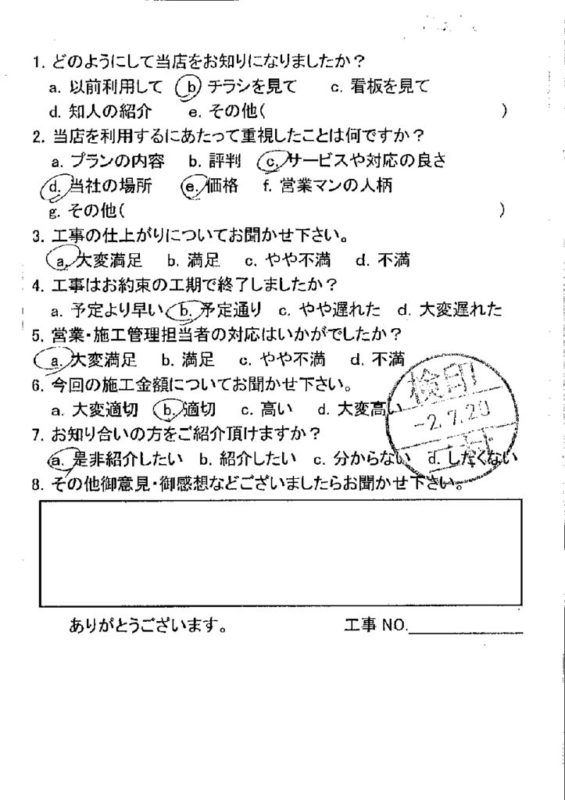 1. どのようにして当店をお知りになりましたか？
a. 以前利用して b. チラシを見て c. 看板を見て
d. 知人の紹介 e. その他( )
2. 当店を利用するにあたって重視したことは何ですか？
a. プランの内容 b. 評判 c. サービスや対応の良さ
d. 当社の場所 e. 価格 f. 営業マンの人柄
g. その他( )
3. 工事の仕上がりについてお聞かせ下さい。
a. 大変満足 b. 満足 c. やや不満 d. 不満
4. 工事はお約束の工期で終了しましたか？
a. 予定より早い b. 予定通り c. やや遅れた d. 大変遅れた
5. 営業・施工管理担当者の対応はいかがでしたか？
a. 大変満足 b. 満足 c. やや不満 d. 不満
6. 今回の施工金額についてお聞かせ下さい。
a. 大変適切 b. 適切 c. 高い d. 大変高い
検印
-2.7.20
7. お知り合いの方をご紹介頂けますか？
a. 是非紹介したい b. 紹介したい c. 分からない d. したくない
8. その他御意見・御感想などございましたらお聞かせ下さい。
ありがとうございます。 工事 NO.